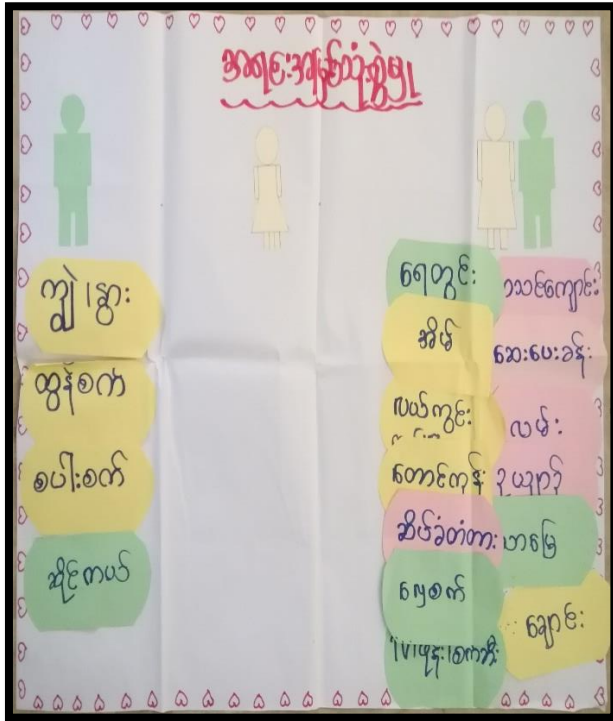 အရင်းအမြစ်သုံးစွဲမှု
ကျွဲ၊နွား
ထွန်စက်
စပါးစက်
ဆိုင်ကယ်
ရေတွင်း
အိမ်
လယ်ကွင်း
တောင်ကုန်း
ဆိပ်ခံတံတား
လှေစက်
စာသင်ကျောင်း
ဆေးပေးခန်း
လမ်း
ဥယျာဉ်
ဟာမြေ
ချောင်း